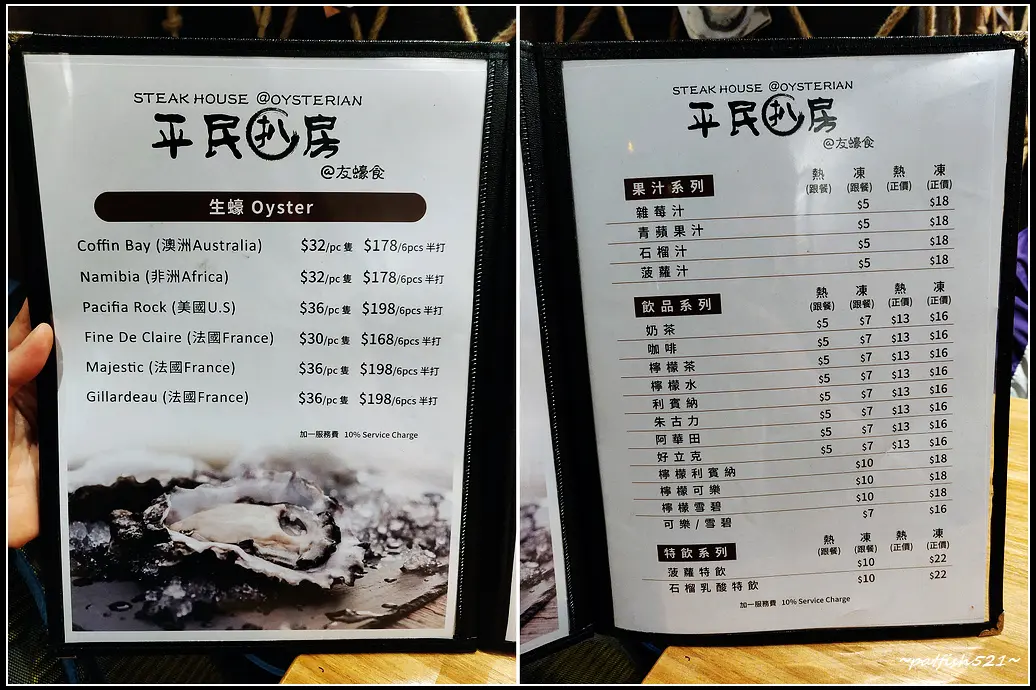 STEAK HOUSE @OYSTERIAN
平民扒房
@友蠔食
生蠔 Oyster
Coffin Bay (澳洲Australia) $32/pc 隻 $178/6pcs 半打
Namibia (非洲Africa) $32/pc 隻 $178/6pcs 半打
Pacifia Rock (美國U.S) $36/pc 隻 $198/6pcs 半打
Fine De Claire (法國France) $30/pc 隻 $168/6pcs 半打
Majestic (法國France) $36/pc 隻 $198/6pcs 半打
Gillardeau (法國France) $36/pc 隻 $198/6pcs 半打
加一服務費 10% Service Charge
STEAK HOUSE @OYSTERIAN
平民扒房
@友蠔食
果汁系列 熱(跟餐) 凍(跟餐) 熱(正價) 凍(正價)
雜莓汁 $5 $18
青蘋果汁 $5 $18
石榴汁 $5 $18
菠蘿汁 $5 $18
飲品系列 熱(跟餐) 凍(跟餐) 熱(正價) 凍(正價)
奶茶 $5 $7 $13 $16
咖啡 $5 $7 $13 $16
檸檬茶 $5 $7 $13 $16
檸檬水 $5 $7 $13 $16
利賓納 $5 $7 $13 $16
朱古力 $5 $7 $13 $16
阿華田 $5 $7 $13 $16
好立克 $5 $7 $13 $16
檸檬利賓納 $10 $18
檸檬可樂 $10 $18
檸檬雪碧 $10 $18
可樂/雪碧 $7 $16
特飲系列 熱(跟餐) 凍(跟餐) 熱(正價) 凍(正價)
菠蘿特飲 $10 $22
石榴乳酸特飲 $10 $22
加一服務費 10% Service Charge
~patfish521~